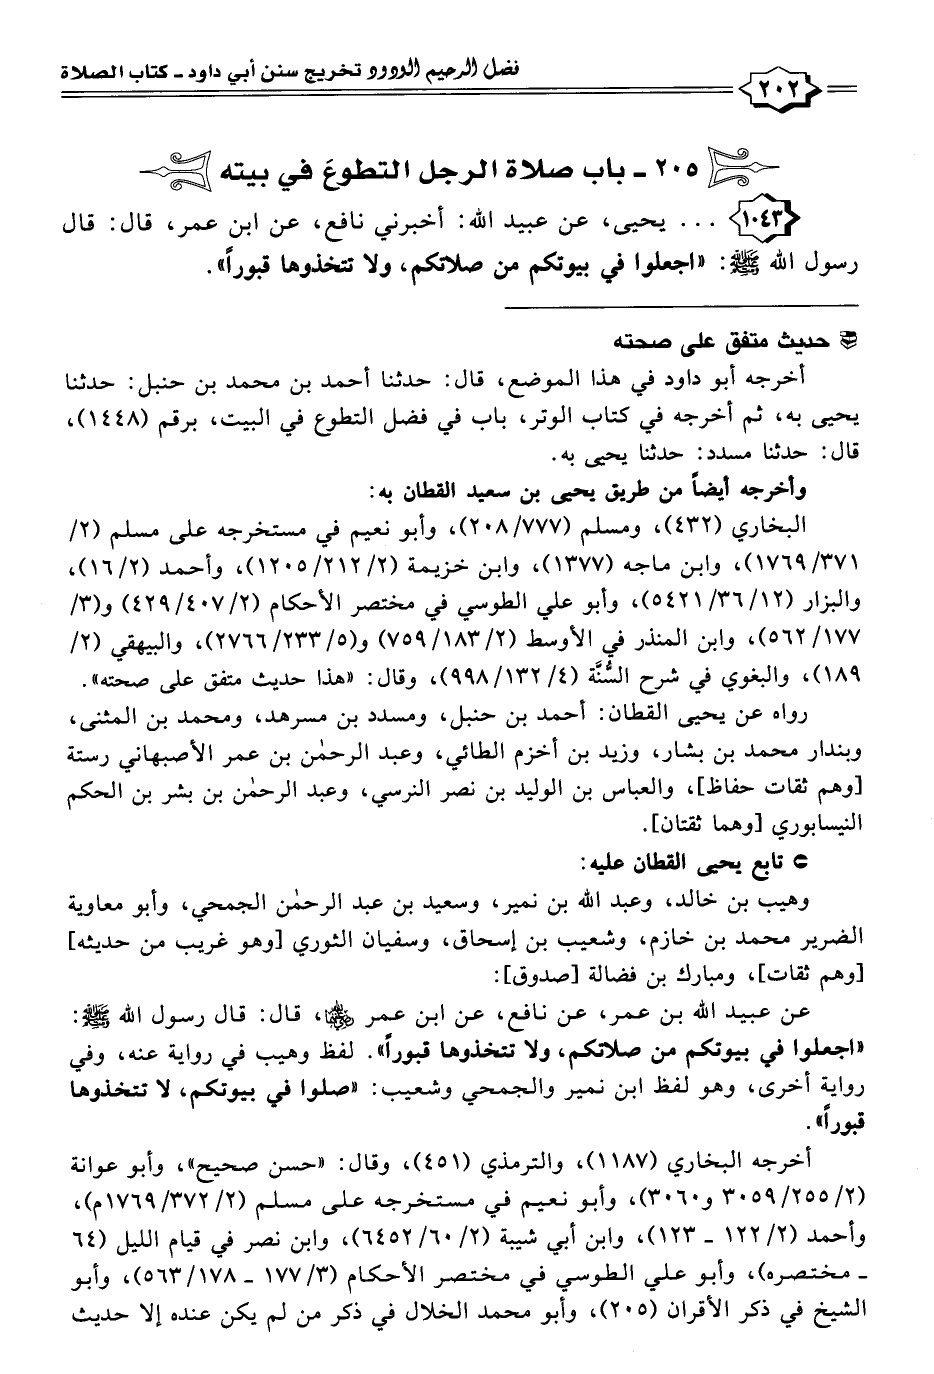 فضل الرحيم الودود تخريج سنن أبي داود - كتاب الصلاة
٢٠٢
٢٠٥ - باب صلاة الرجل التطوعَ في بيته
١٠٤٣ ... يحيى، عن عبيد الله: أخبرني نافع، عن ابن عمر، قال: قال
رسول الله ﷺ: «اجعلوا في بيوتكم من صلاتكم، ولا تتخذوها قبوراً».
حديث متفق على صحته
أخرجه أبو داود في هذا الموضع، قال: حدثنا أحمد بن محمد بن حنبل: حدثنا
يحيى به، ثم أخرجه في كتاب الوتر، باب في فضل التطوع في البيت، برقم (١٤٤٨)،
قال: حدثنا مسدد: حدثنا يحيى به.
وأخرجه أيضاً من طريق يحيى بن سعيد القطان به:
البخاري (٤٣٢)، ومسلم (٢٠٨/٧٧٧)، وأبو نعيم في مستخرجه على مسلم (٢/
١٧٦٩/٣٧١)، وابن ماجه (١٣٧٧)، وابن خزيمة (١٢٠٥/٢١٢/٢)، وأحمد (١٦/٢)،
والبزار (٥٤٢١/٣٦/١٢)، وأبو علي الطوسي في مختصر الأحكام (٤٢٩/٤٠٧/٢) و(٣/
٥٦٢/١٧٧)، وابن المنذر في الأوسط (٧٥٩/١٨٣/٢) و(٢٧٦٦/٢٣٣/٥)، والبيهقي (٢/
١٨٩)، والبغوي في شرح السُّنَّة (٩٩٨/١٣٢/٤)، وقال: «هذا حديث متفق على صحته».
رواه عن يحيى القطان: أحمد بن حنبل، ومسدد بن مسرهد، ومحمد بن المثنى،
وبندار محمد بن بشار، وزيد بن أخزم الطائي، وعبد الرحمٰن بن عمر الأصبهاني رستة
[وهم ثقات حفاظ]، والعباس بن الوليد بن نصر النرسي، وعبد الرحمٰن بن بشر بن الحكم
النيسابوري [وهما ثقتان].
تابع يحيى القطان عليه:
وهيب بن خالد، وعبد الله بن نمير، وسعيد بن عبد الرحمٰن الجمحي، وأبو معاوية
الضرير محمد بن خازم، وشعيب بن إسحاق، وسفيان الثوري [وهو غريب من حديثه]
[وهم ثقات]، ومبارك بن فضالة [صدوق]:
عن عبيد الله بن عمر، عن نافع، عن ابن عمر رضي الله عنهما، قال: قال رسول الله ﷺ:
«اجعلوا في بيوتكم من صلاتكم، ولا تتخذوها قبوراً». لفظ وهيب في رواية عنه، وفي
رواية أخرى، وهو لفظ ابن نمير والجمحي وشعيب: «صلوا في بيوتكم، لا تتخذوها
قبوراً».
أخرجه البخاري (١١٨٧)، والترمذي (٤٥١)، وقال: «حسن صحيح»، وأبو عوانة
(٣٠٥٩/٢٥٥/٢ و٣٠٦٠)، وأبو نعيم في مستخرجه على مسلم (١٧٦٩/٣٧٢/٢م)،
وأحمد (١٢٢/٢ - ١٢٣)، وابن أبي شيبة (٦٤٥٢/٦٠/٢)، وابن نصر في قيام الليل (٦٤
- مختصره)، وأبو علي الطوسي في مختصر الأحكام (١٧٧/٣ - ٥٦٣/١٧٨)، وأبو
الشيخ في ذكر الأقران (٢٠٥)، وأبو محمد الخلال في ذكر من لم يكن عنده إلا حديث